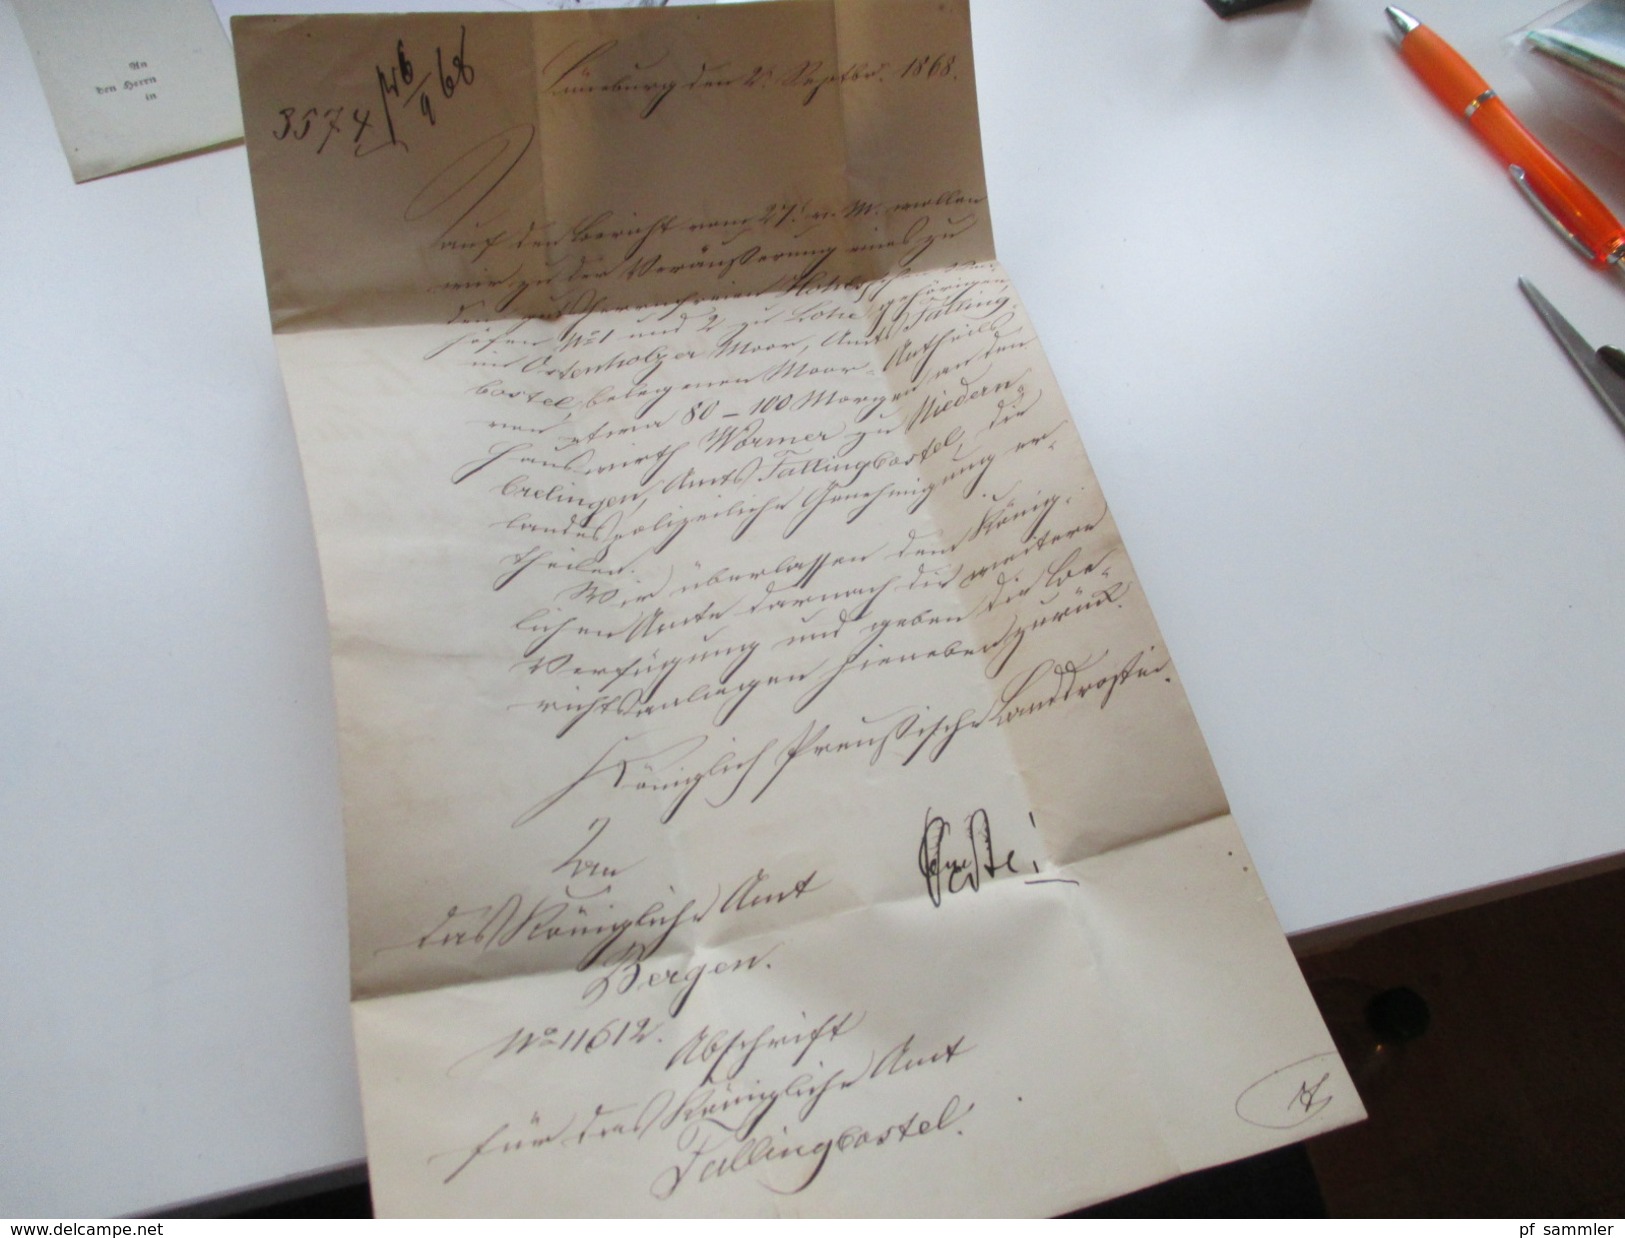 An
den Herrn
in
3574 / 46/9 68
Lüneburg den 2. Septbr. 1868.
Auf den Bericht vom 27. v. M. wollen
wir zu der Veräußerung eines zu
den gutsherrnfreien
höfen No 1 und 2 zu Lohe gehörigen,
im Ostenholzer Moor, Amts Falling-
bostel, belegenen Moor-Antheils
von etwa 80 – 100 Morgen an den
Hauswirth Wörmer zu Niedern-
Oerlingen, Amts Fallingbostel, die
landespolizeiliche Genehmigung er-
theilen.
Wir überlassen dem König-
lichen Amte darnach die weitere
Verfügung und geben die Be-
richtsanlagen hieneben zurück.
Königlich Preußische Landdrostei.
An
das Königliche Amt
Bergen.
No 11612.
Abschrift
für das Königliche Amt
Fallingbostel.
www.delcampe.net
pf_sammler